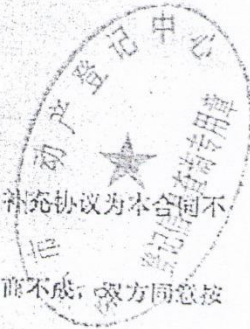 市
动产登记中心
登记信息查询专用章
补充协议为本合同不
商不成，双方同意按